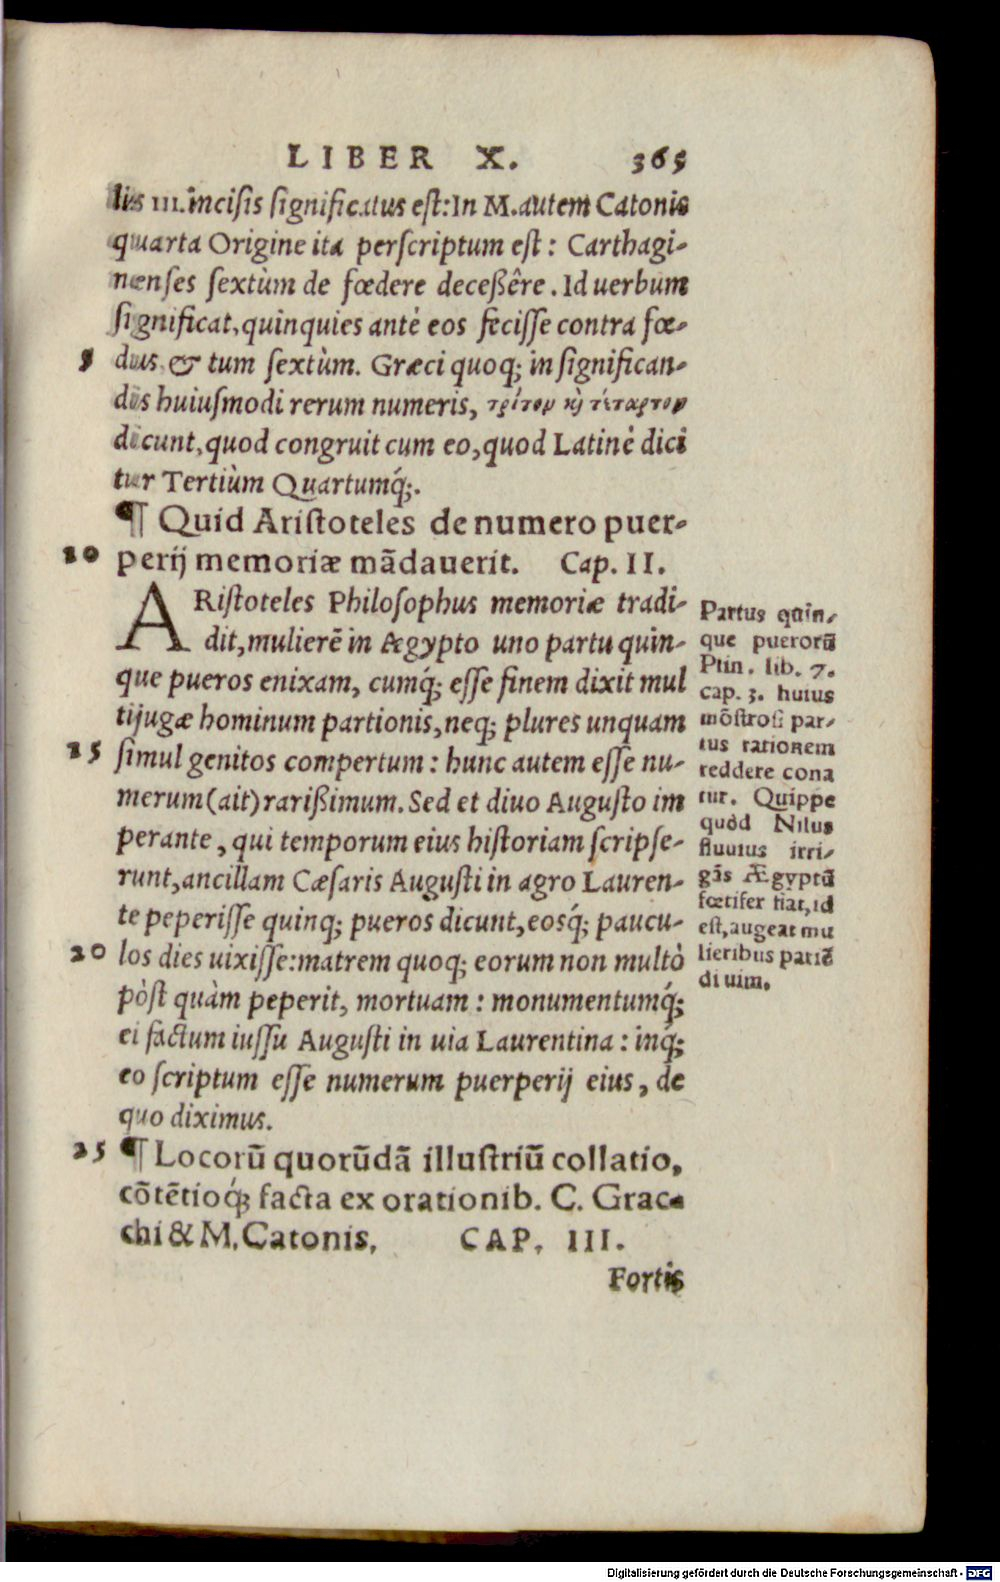 LIBER X. 365
lis III. incisis significatus est: In M. autem Catonis
quarta Origine ita perscriptum est: Carthagi-
nenses sextùm de fœdere deceßêre. Id uerbum
significat, quinquies antè eos fecisse contra fœ-
5 dus, & tum sextùm. Græci quoq; in significan-
dis huiusmodi rerum numeris, τρίτον ϗ τέταρτον
dicunt, quod congruit cum eo, quod Latinè dici
tur Tertiùm Quartumq́;.
¶ Quid Aristoteles de numero puer-
10 perij memoriæ mãdauerit. Cap. II.
ARistoteles Philosophus memoriæ tradi-
dit, mulierẽ in Ægypto uno partu quin-
que pueros enixam, cumq́; esse finem dixit mul
tijugæ hominum partionis, neq; plures unquam
15 simul genitos compertum: hunc autem esse nu-
merum (ait) rarißimum. Sed et diuo Augusto im
perante, qui temporum eius historiam scripse-
runt, ancillam Cæsaris Augusti in agro Lauren-
te peperisse quinq; pueros dicunt, eosq́; paucu-
20 los dies uixisse: matrem quoq; eorum non multò
pòst quàm peperit, mortuam: monumentumq́;
ei factum iussu Augusti in uia Laurentina: inq́;
eo scriptum esse numerum puerperij eius, de
quo diximus.
25 ¶ Locorũ quorũdã illustriũ collatio,
cõtẽtioq́; facta ex orationib. C. Grac-
chi & M. Catonis, CAP. III.
Fortis
Partus quin-
que puerorũ
Plin. lib. 7.
cap. 3. huius
mõstrosi par-
tus rationem
reddere cona
tur. Quippe
quòd Nilus
fluuius irri-
gãs Ægyptũ
fœtifer fiat, id
est, augeat mu
lieribus pariẽ
di uim.
Digitalisierung gefördert durch die Deutsche Forschungsgemeinschaft - DFG